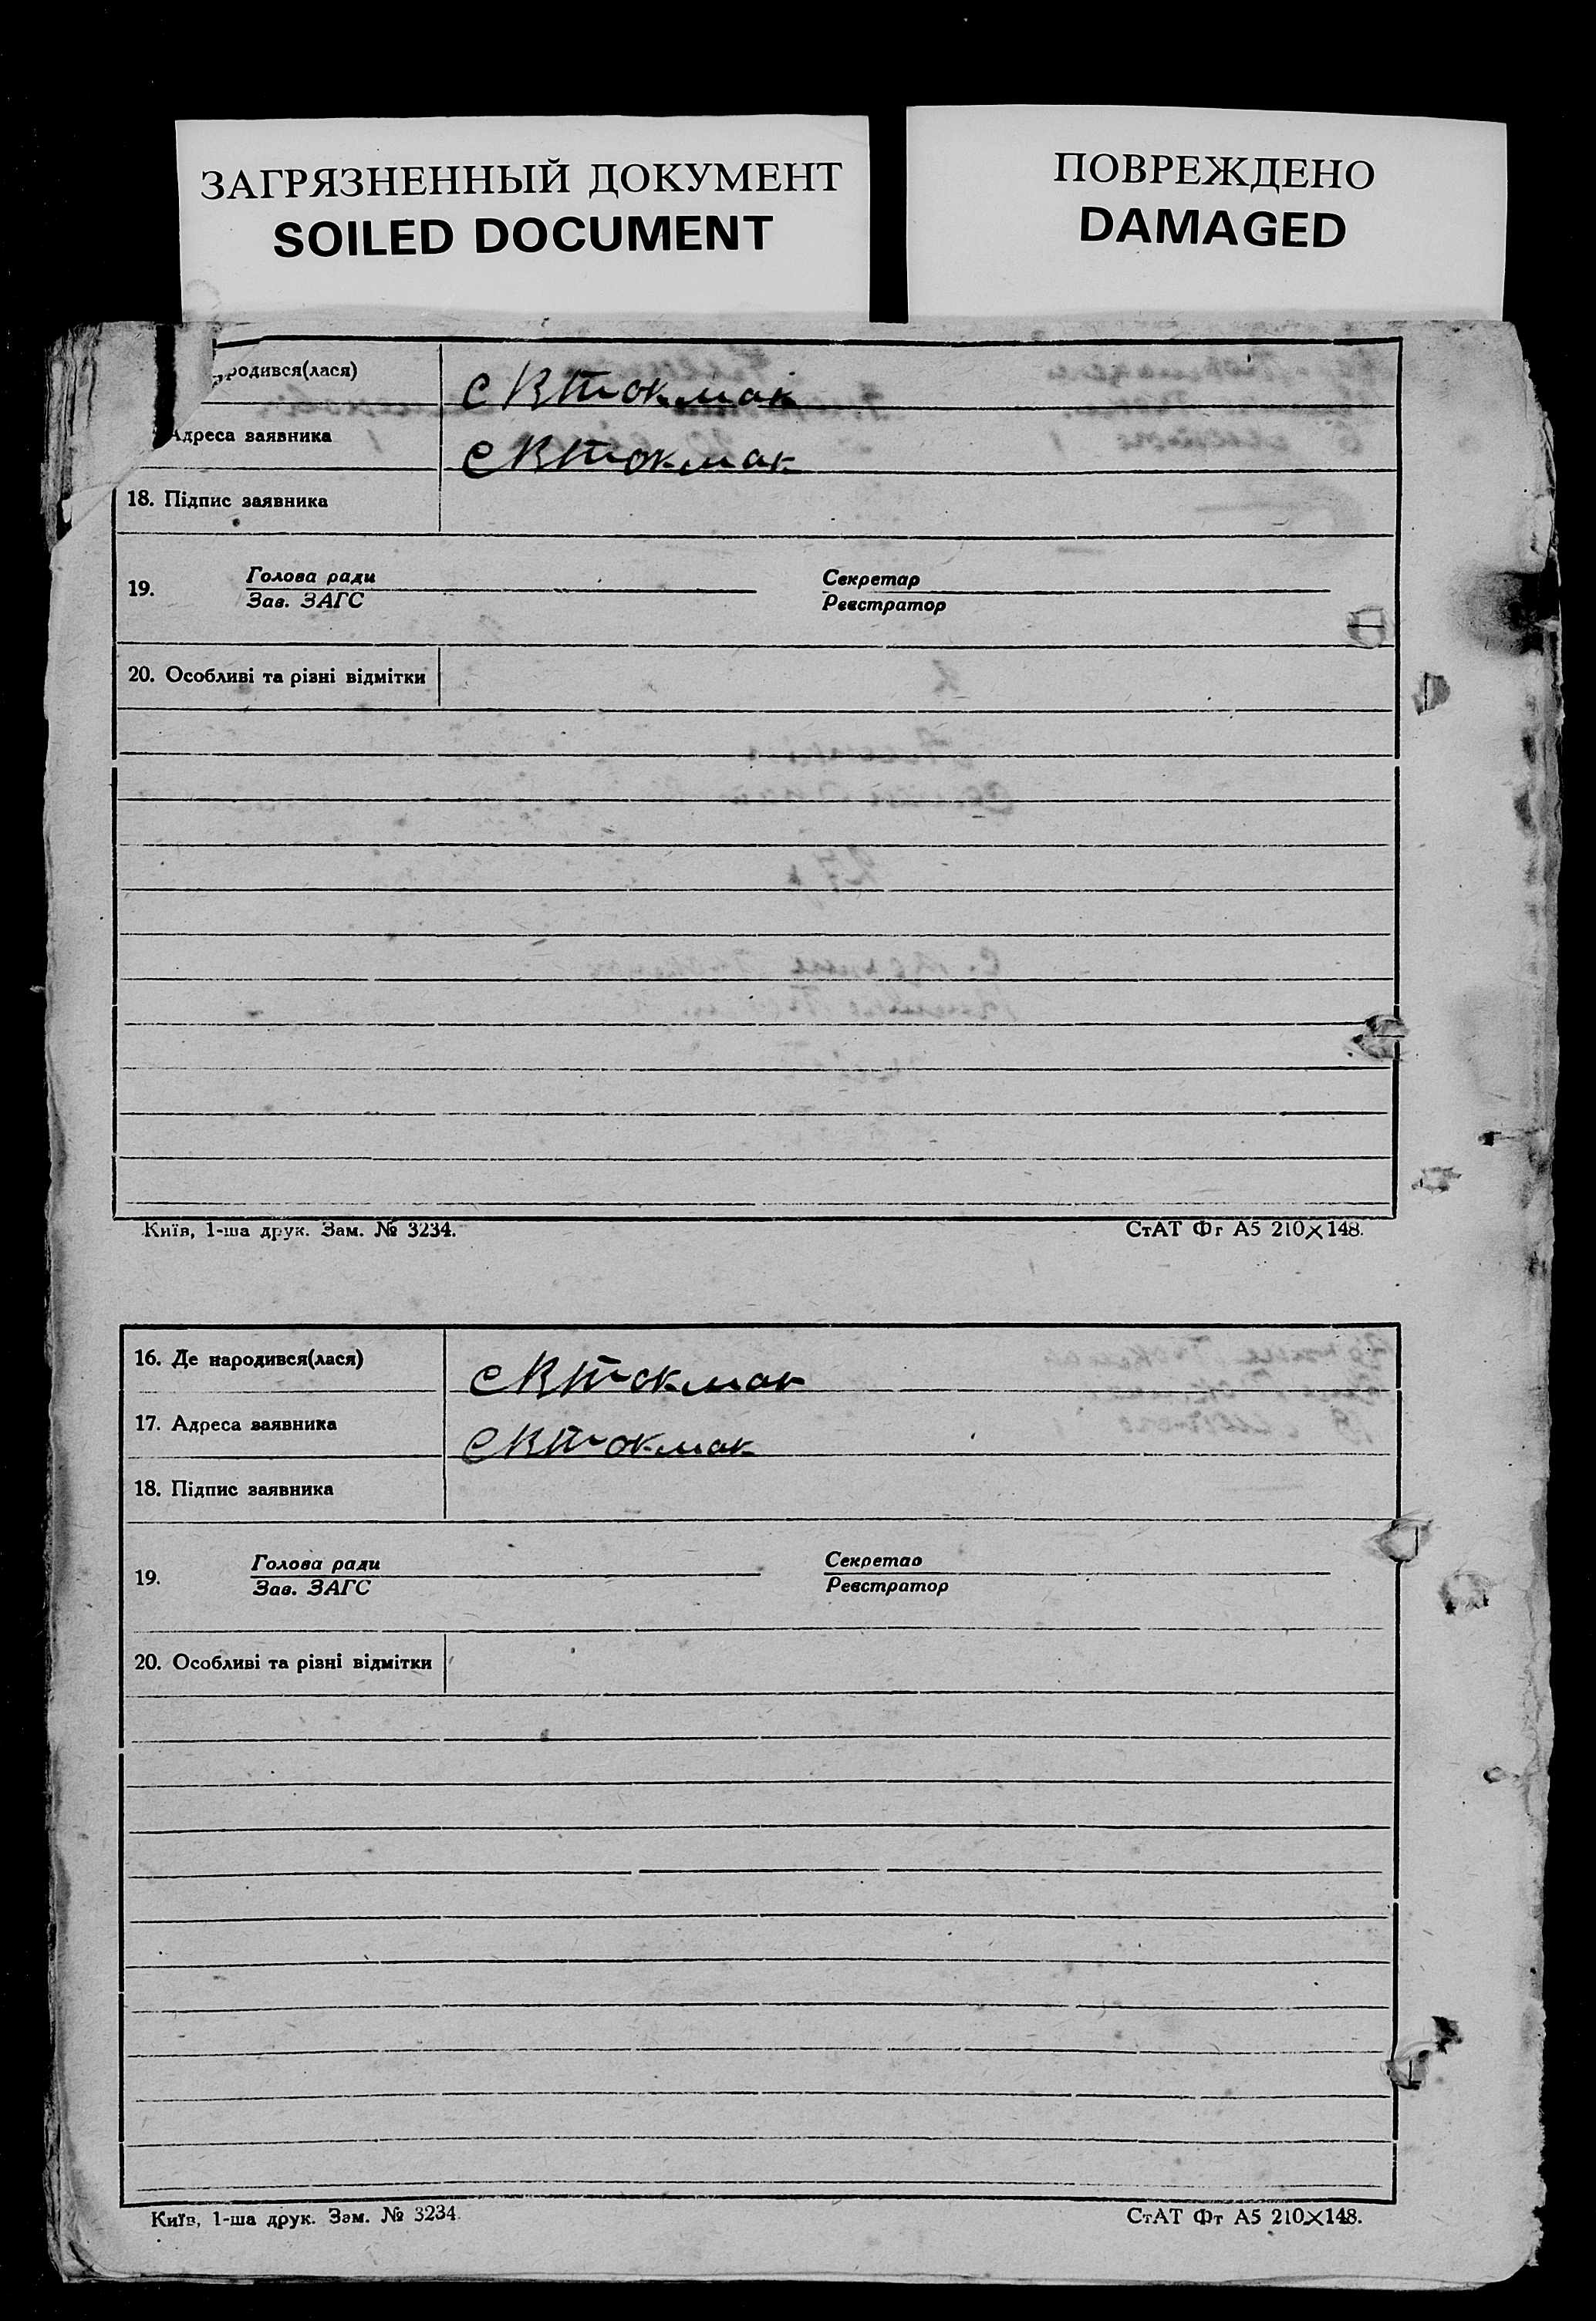 ЗАГРЯЗНЕННЫЙ ДОКУМЕНТ
SOILED DOCUMENT
ПОВРЕЖДЕНО
DAMAGED
родився(лася) с В Токмак
Адреса заявника с В Токмак
18. Підпис заявника
19. Голова ради Секретар
Зав. ЗАГС Реєстратор
20. Особливі та різні відмітки
Київ, 1-ша друк. Зам. № 3234. СтАТ Фг А5 210×148.
16. Де народився(лася) с В Токмак
17. Адреса заявника с В Токмак
18. Підпис заявника
19. Голова ради Секретао
Зав. ЗАГС Реєстратор
20. Особливі та різні відмітки
Київ, 1-ша друк. Зам. № 3234. СтАТ Фт А5 210×148.